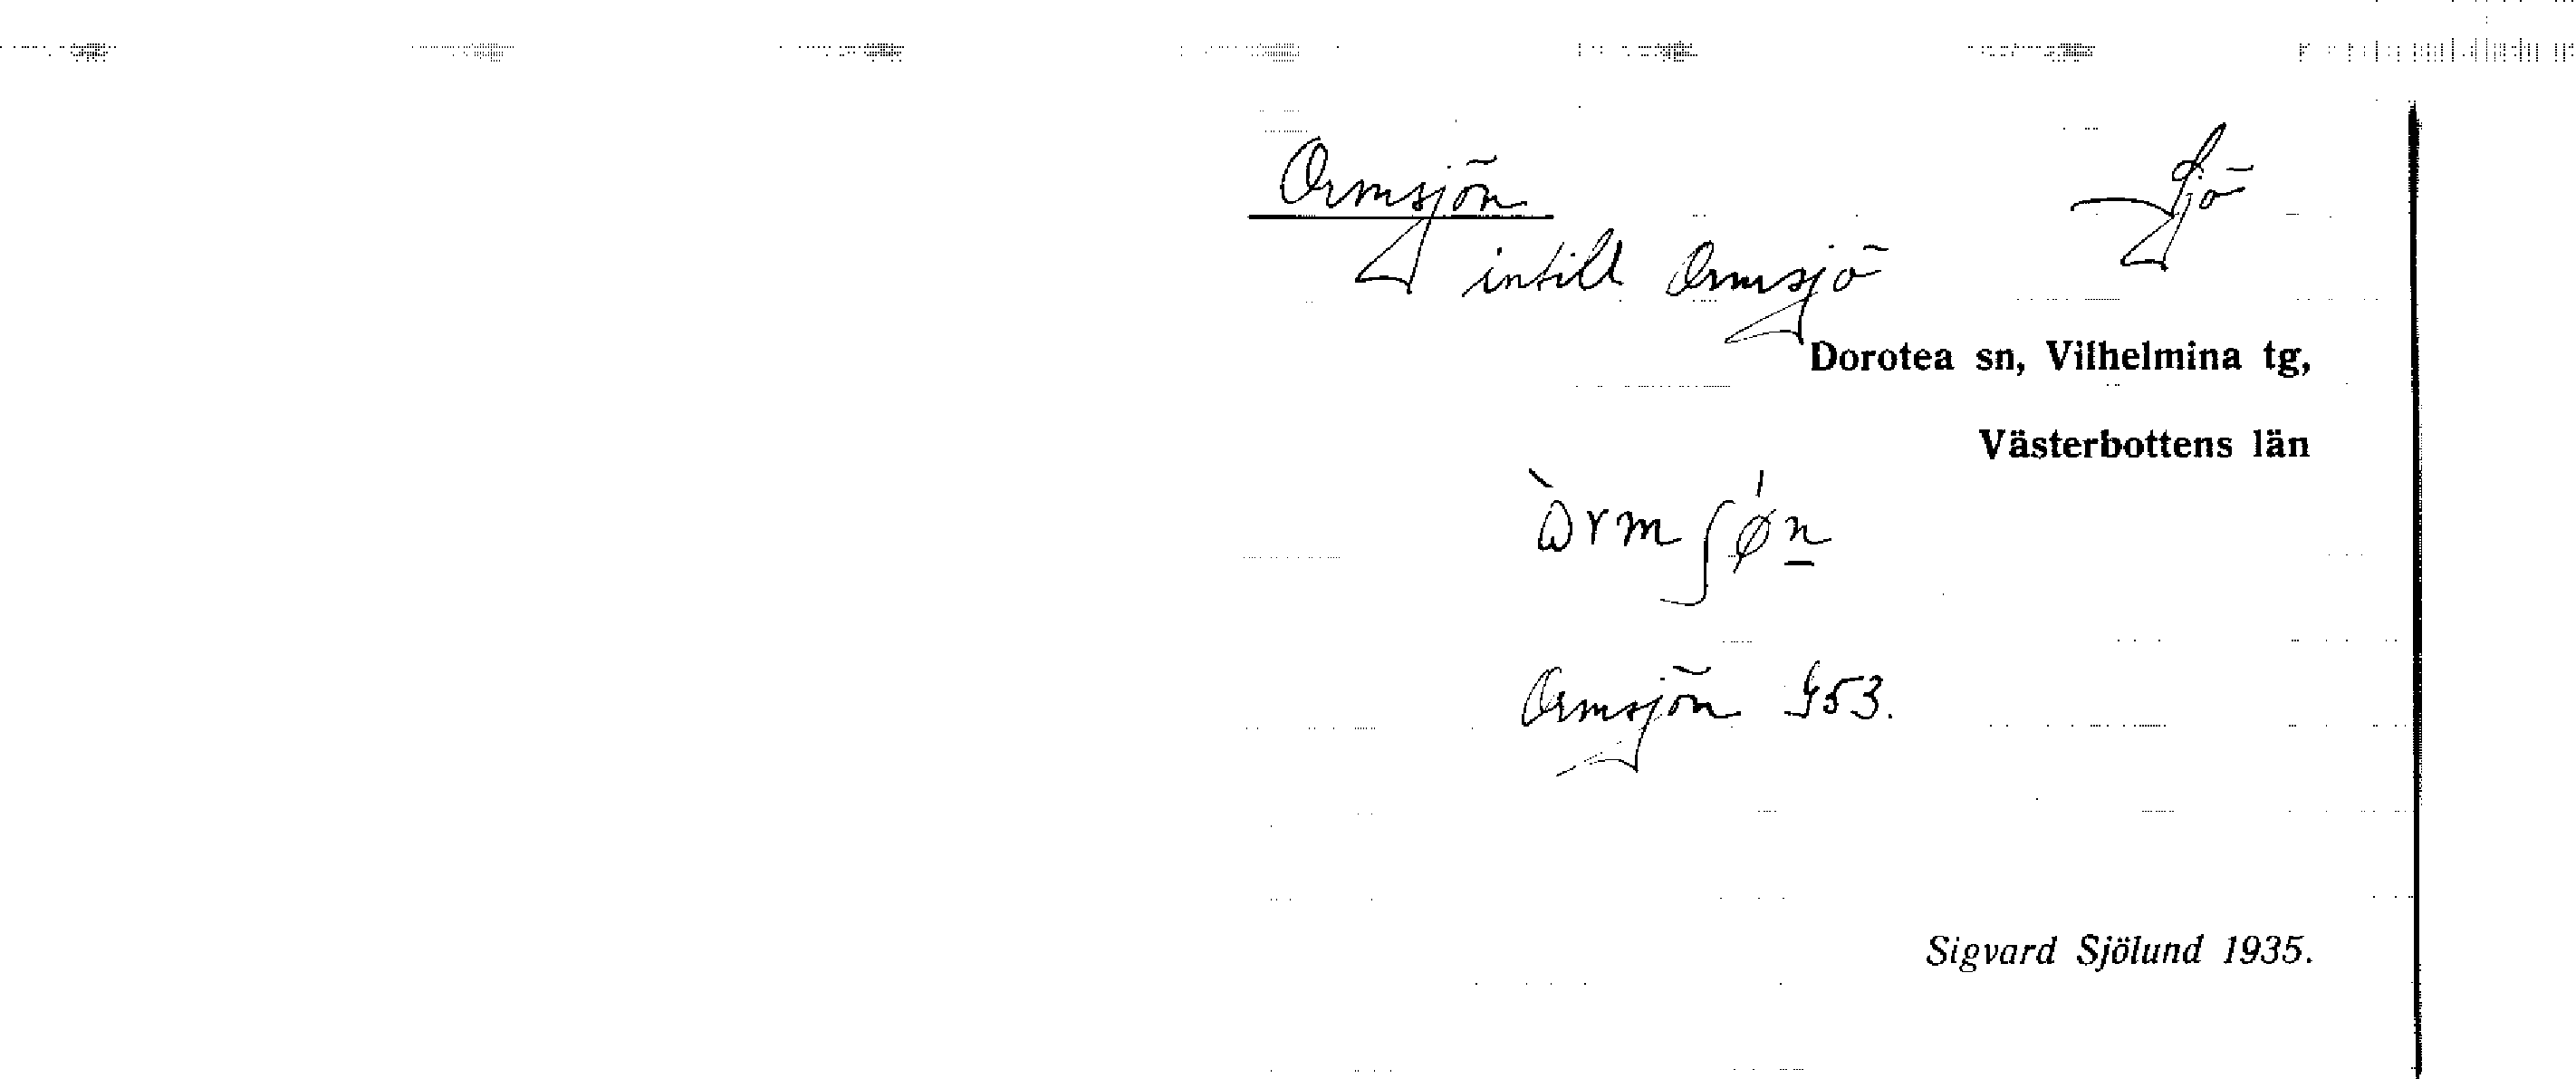 Ormsjön Sjö
intill Ormsjö
Dorotea sn, Vilhelmina tg,
Västerbottens län
ὼrmʃø̍n̲
Ormsjön G53.
Sigvard Sjölund 1935.